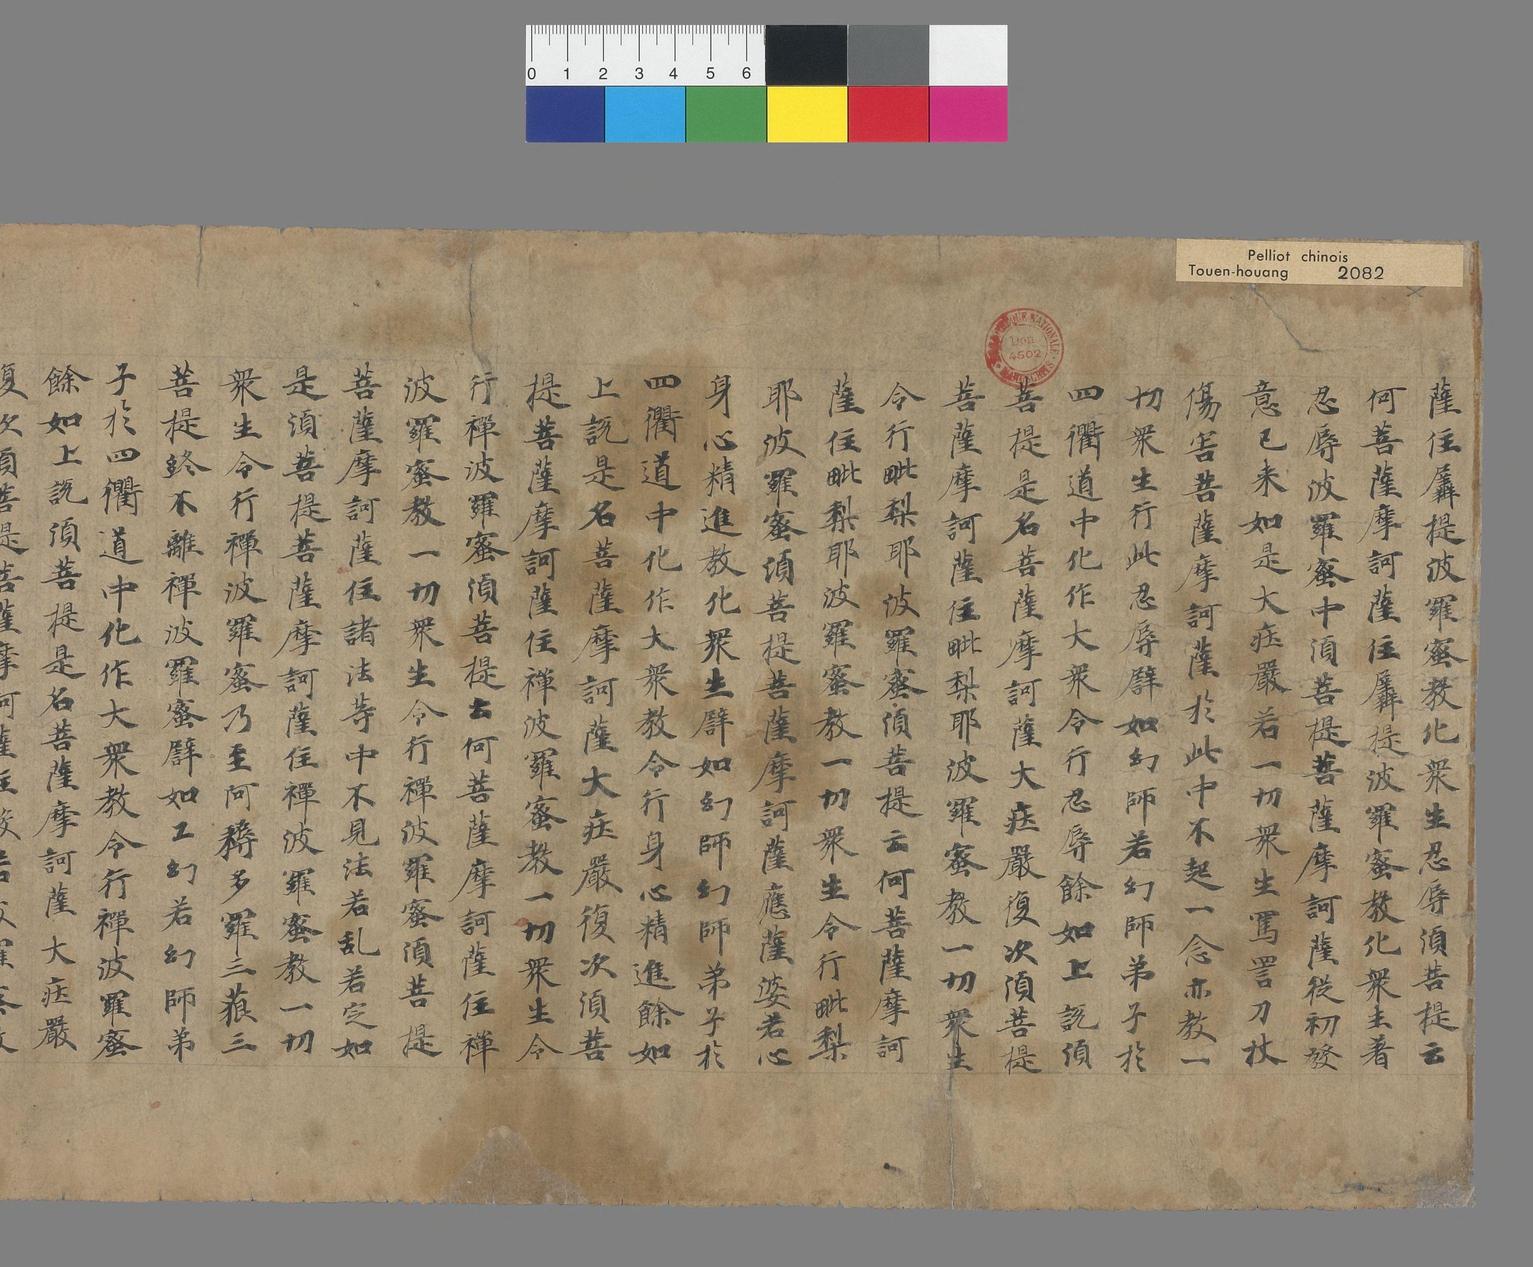 0 1 2 3 4 5 6
Pelliot chinois
Touen-houang 2082
薩住羼提波羅蜜教化衆生忍辱湏菩提云
何菩薩摩訶薩住羼提波羅蜜教化衆生著
忍辱波羅蜜中湏菩提菩薩摩訶薩從初發
意已来如是大庄嚴若一切衆生罵詈刀杖
傷害菩薩摩訶薩於此中不起一念亦教一
切衆生行此忍辱譬如幻師若幻師弟子於
四衢道中化作大衆令行忍辱餘如上説湏
菩提是名菩薩摩訶薩大庄嚴復次湏菩提
菩薩摩訶薩住毗梨耶波羅蜜教一切衆生
令行毗梨耶波羅蜜湏菩提云何菩薩摩訶
薩住毗梨耶波羅蜜教一切衆生令行毗梨
耶波羅蜜湏菩提菩薩摩訶薩應薩婆若心
身心精進教化衆生譬如幻師幻師弟子於
四衢道中化作大衆教令行身心精進餘如
上説是名菩薩摩訶薩大庄嚴復次湏菩
提菩薩摩訶薩住禪波羅蜜教一切衆生令
行禪波羅蜜湏菩提云何菩薩摩訶薩住禪
波羅蜜教一切衆生令行禪波羅蜜湏菩提
菩薩摩訶薩住諸法等中不見法若乱若定如
是湏菩提菩薩摩訶薩住禪波羅蜜教一切
衆生令行禪波羅蜜乃至阿耨多羅三藐三
菩提終不離禪波羅蜜譬如工幻若幻師弟
子於四衢道中化作大衆教令行禪波羅蜜
餘如上説湏菩提是名菩薩摩訶薩大庄嚴
復次湏菩提菩薩摩訶薩住般若波羅蜜教